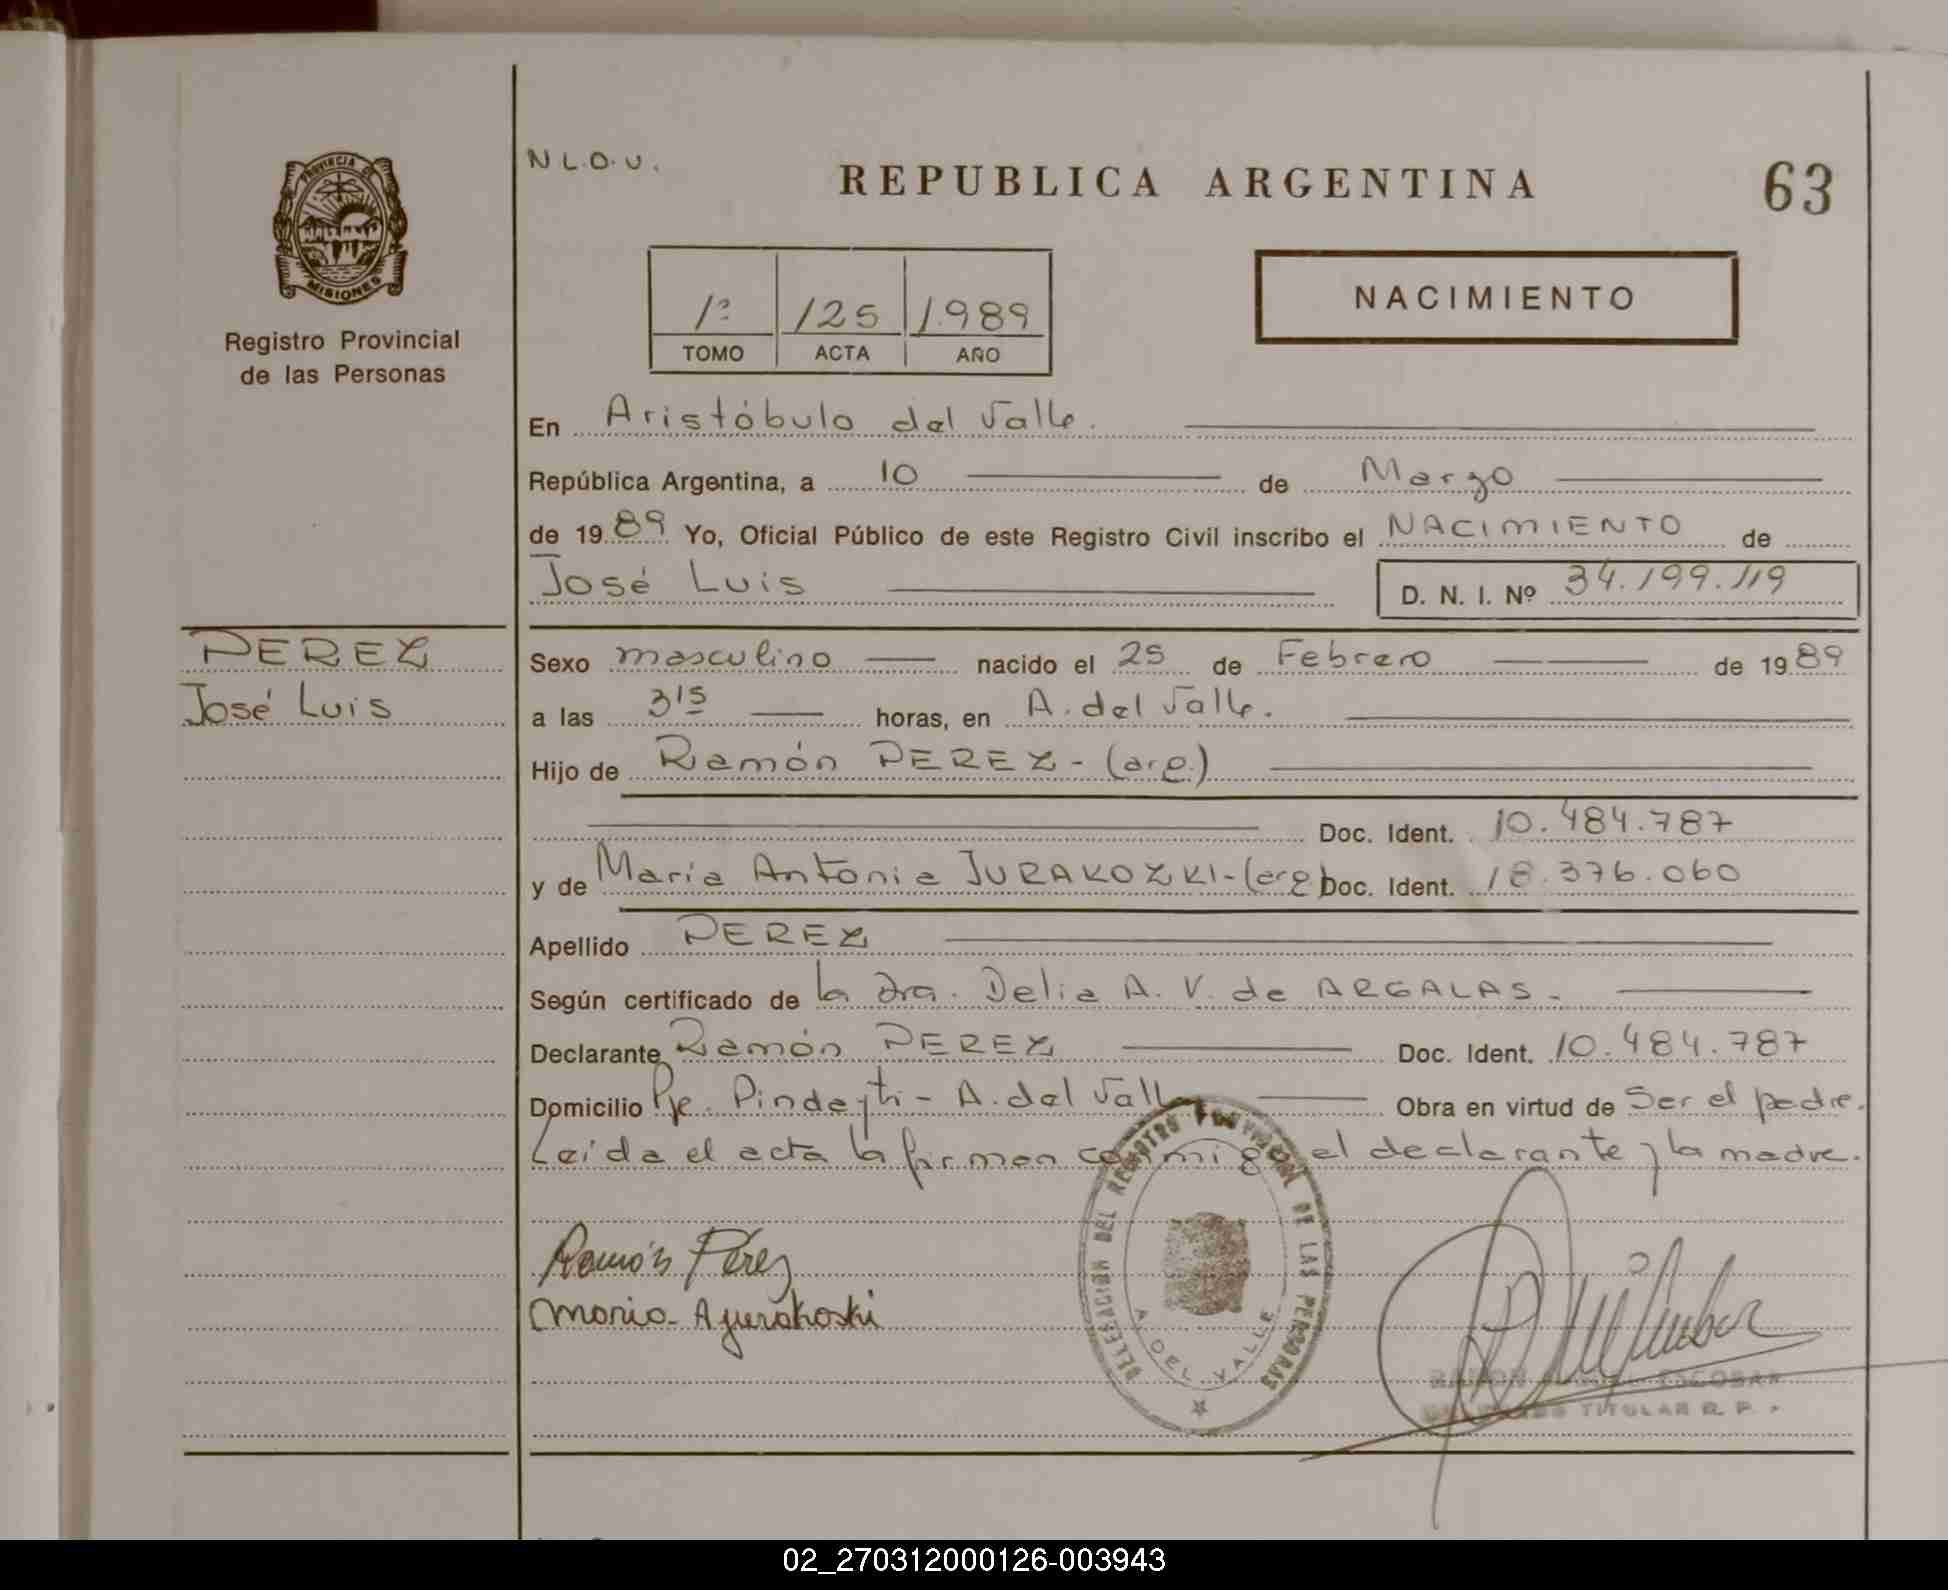 N L.O.U.
REPUBLICA ARGENTINA
63
PROVINCIA DE
MISIONES
Registro Provincial
de las Personas
1º 125 1.989
TOMO ACTA AÑO
NACIMIENTO
En Aristóbulo del Valle.
República Argentina, a 10 de Marzo
de 1989 Yo, Oficial Público de este Registro Civil inscribo el NACIMIENTO de
José Luis
D. N. I. Nº 34.199.119
PEREZ
José Luis
Sexo masculino nacido el 25 de Febrero de 1989
a las 3'15 horas, en A. del Valle.
Hijo de Ramón PEREZ - (arg.)
Doc. Ident. 10.484.787
y de María Antonia JURAKOZKI - (arg) Doc. Ident. 18.376.060
Apellido PEREZ
Según certificado de la Dra. Delia A. V. de ARGALAS.
Declarante Ramón PEREZ Doc. Ident. 10.484.787
Domicilio Pje. Pindayti - A. del Valle Obra en virtud de Ser el padre.
Leída el acta la firman conmigo el declarante y la madre.
Ramón Pérez
Maria A Jurakoski
DELEGACION DEL REGISTRO PROVINCIAL DE LAS PERSONAS
A. DEL VALLE
RAMON ESCOBAR
TITULAR R. P.
02_270312000126-003943